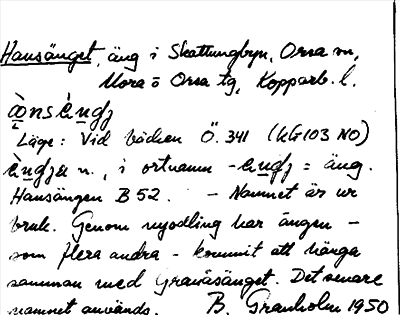 Hansänget, äng i Skattungbyn, Orsa sn,
Mora o Orsa tg, Kopparb. l.
Läge: Vid bäcken Ö. 341 (KG103 NO)
n., i ortnamn = äng.
Hansängen B 52. — Namnet är ur
bruk. Genom nyodling har ängen –
som flera andra – kommit att hänga
samman med Gravåsänget. Det senare
namnet används. B. Granholm 1950